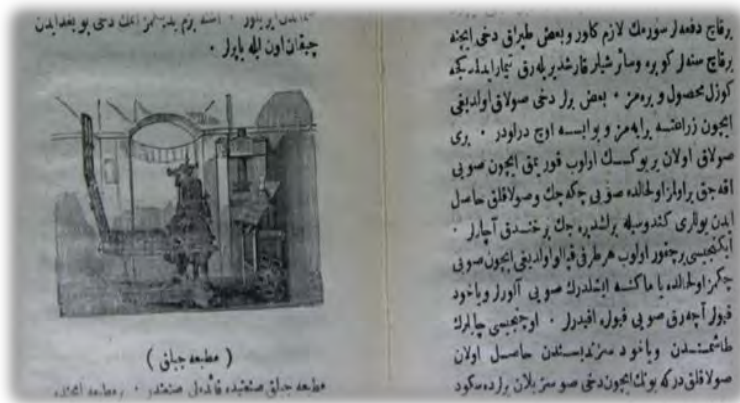 برقاچ دفعه لر سورمك لازم كلور و بعض طپراق دخی ایچنه
برقاچ سنه لر كوبره و سائر شیلر قارشدیریله رق تیمار ایدلمدكجه
كوزل محصول ویره مز · بعض یرلر دخی صولاق اولدیغی
ایچون زراعتـه یرایه مز و بو ایسه اوچ درلودر · بری
صولاق اولان یر یوكسك اولوب قوریمق ایچون صویی
اقه جق یر اولمز اولحالده صویی چكه جك و صولاقلق حاصل
ایدن یوللری كندوسیله برلشدیره جك بر خندق آچارلر ·
ایكنجیسی بر چقور اولوب هر طرفی قپالو اولدیغی ایچون صویی
چكمز اولحالده یا ماكنه ایشلدرك صویی آلورلر و یاخود
قیولر آچه رق صویی قیولره اقیدرلر · اوچنجیسی چایلرك
طاشمسندن و یاخود سزندیسندن حاصل اولان
صولاقلق دركه بونك ایچون دخی صو سزیلان یرلرده سكود
ایریلور · اشته بزم یدیكمز اتمك دخی بو بغدایدن
چیقان اون ایله یاپیلر ·
( مطبعه جیلق )
مطبعه جیلق صنعتیده فائده لی صنعتدر · بر مطبعه ایچنده